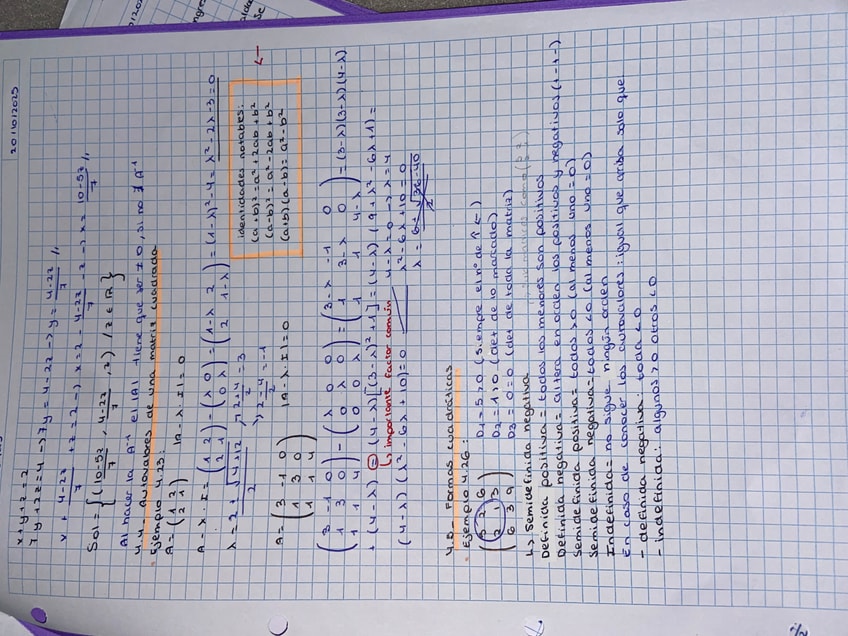 20/10/2025
x+y+z=2
7y+2z=4 → 7y=4-2z → y= 4-2z/7 //
x + 4-2z/7 + z = 2 → x = 2 - 4-2z/7 - z → x = 10-5z/7 //
Sol = { ( 10-5z/7 , 4-2z/7 , z ) / z ∈ ℝ }
Al hacer la A⁻¹ el |A| tiene que ser ≠ 0, si no ∄ A⁻¹
4.4- Autovalores de una matriz cuadrada
· Ejemplo 4.23:
A = ( 1 2 ) |A-λ·I|=0
( 2 1 )
A-λ·I = ( 1 2 ) - ( λ 0 ) = ( 1-λ 2 ) = (1-λ)²-4 = λ²-2λ-3=0
( 2 1 ) ( 0 λ ) ( 2 1-λ )
λ = 2±√4+12 / 2 , 2+4/2 = 3
, 2-4/2 = -1
identidades notables:
(a+b)²=a²+2ab+b²
(a-b)²=a²-2ab+b²
(a+b)(a-b)=a²-b²
←
A = ( 3 -1 0 ) |A-λ·I|=0
( 1 3 0 )
( 1 1 4 )
( 3 -1 0 ) - ( λ 0 0 ) = ( 3-λ -1 0 ) = (3-λ)(3-λ)(4-λ)
( 1 3 0 ) ( 0 λ 0 ) ( 1 3-λ 0 )
( 1 1 4 ) ( 0 0 λ ) ( 1 1 4-λ )
+ (4-λ) = (4-λ)[(3-λ)²+1] = (4-λ)(9+λ²-6λ+1) =
↳ importante factor común
(4-λ)(λ²-6λ+10)=0 4-λ=0 → λ=4
λ²-6λ+10=0
λ = 6±√36-40 / 2
4.5- Formas cuadráticas
· Ejemplo 4.26:
( 5 2 6 ) D1=5>0 (siempre el nº de ↑←)
( 2 1 3 ) D2=1>0 (det de lo marcado)
( 6 3 9 ) D3=0=0 (det de toda la matriz)
↳ Semidefinida negativa
Definida positiva= todos los menores son positivos
Definida negativa= altera en orden los positivos y negativos (- + -)
Semidefinida positiva= todos >0 (al menos uno =0)
Semidefinida negativa= todos <0 (al menos uno =0)
Indefinida= no sigue ningún orden
En caso de conocer los autovalores: igual que arriba solo que
- definida negativa: toda <0
- indefinida: algunos >0 otros <0